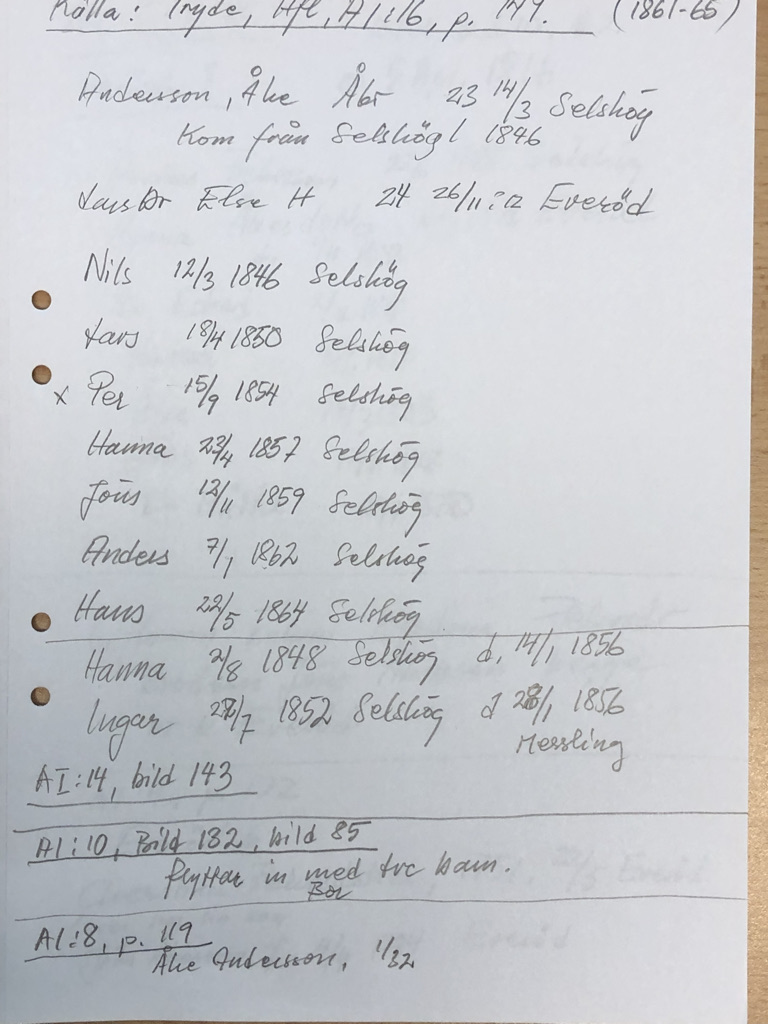 Källa: Tryde, Hfl, AI:16, p. 179. (1861-65)
Andersson, Åke Åbr 23 14/3 Selshög
Kom från Selshög 1 1846
LarsDr Else H 24 26/11 Everöd
Nils 12/3 1846 Selshög
Lars 18/4 1850 Selshög
x Per 15/9 1854 Selshög
Hanna 23/4 1857 Selshög
Jöns 12/11 1859 Selshög
Anders 7/1 1862 Selshög
Hans 22/5 1864 Selshög
Hanna 2/8 1848 Selshög d. 14/1 1856
Ingar /7 1852 Selshög d 28/1 1856
Messling
AI:14, bild 143
AI:10, Bild 182, bild 85
flyttar in med tre barn.
Bor
AI:8, p. 119
Åke Andersson, 1/32